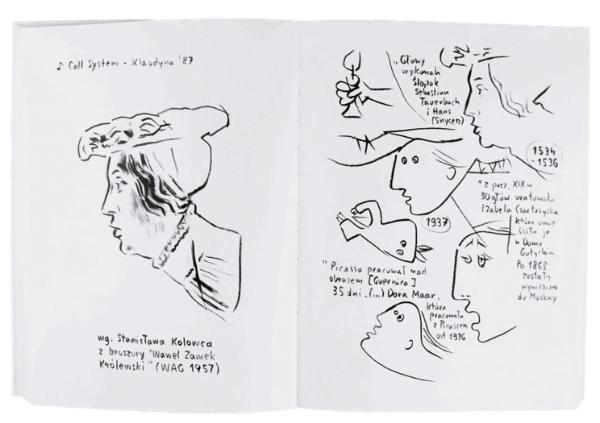 ♪ Coll System - Klaudyna '87
wg. Stanisława Kolowca
z broszury "Wawel Zamek
Królewski" (WAG 1957)
„Głowy
wykonali
Ślązak
Sebastian
Tauerbach
i Hans
(snycerz)
1534
- 1536
" z pocz. XIX w
30 głów uratowała
Izabela Czartoryska
która umie-
ściła je
w Domu
Gotyckim.
Po 1863
zostały
wywiezione
do Moskwy
1937
"Picasso pracował nad
obrazem [Guernica]
35 dni. (...) Dora Maar,
która
pracowała
z Picassem
od 1936